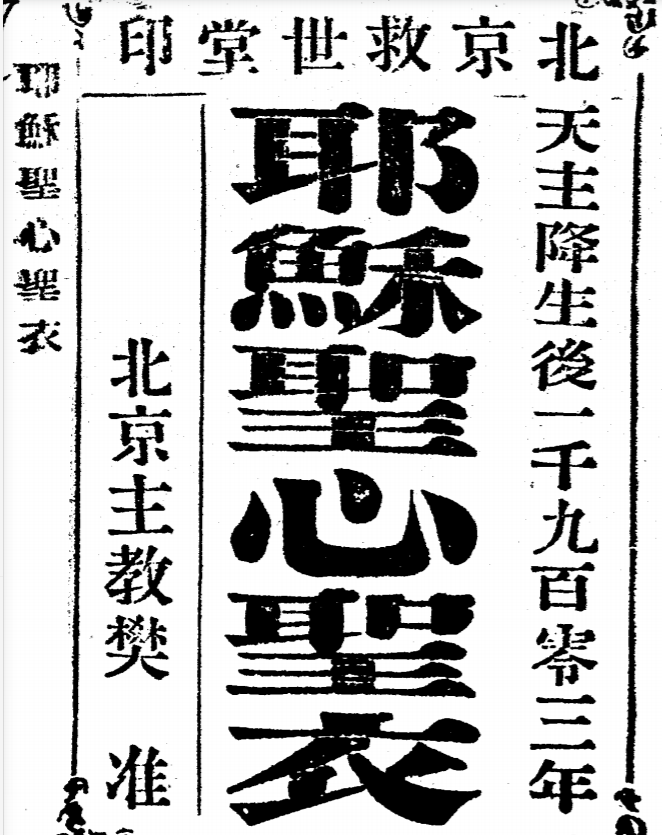 北京救世堂印
天主降生後一千九百零三年
耶穌聖心聖衣
北京主教樊 准
耶穌聖心聖衣